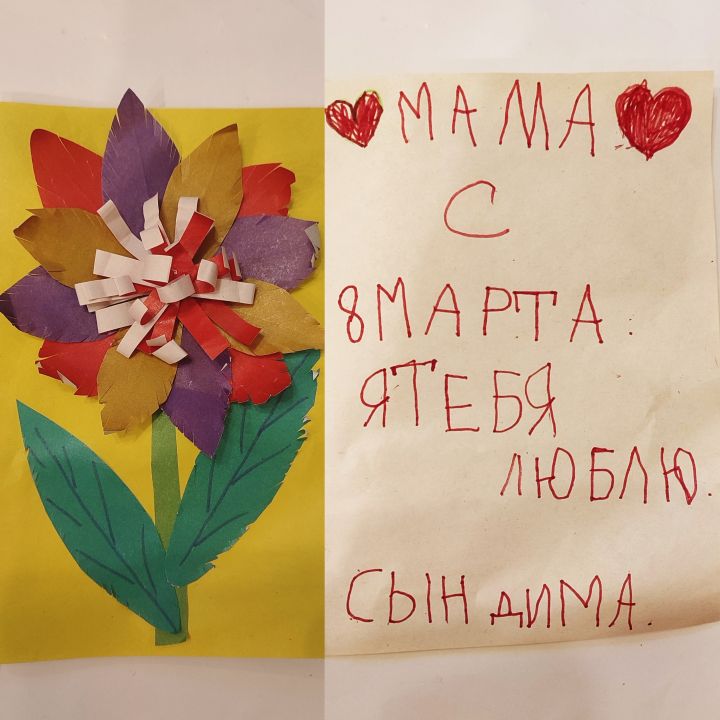 МАМА
С
8МАРТА:
ЯТЕБЯ
ЛЮБЛЮ.
СЫН ДИМА.